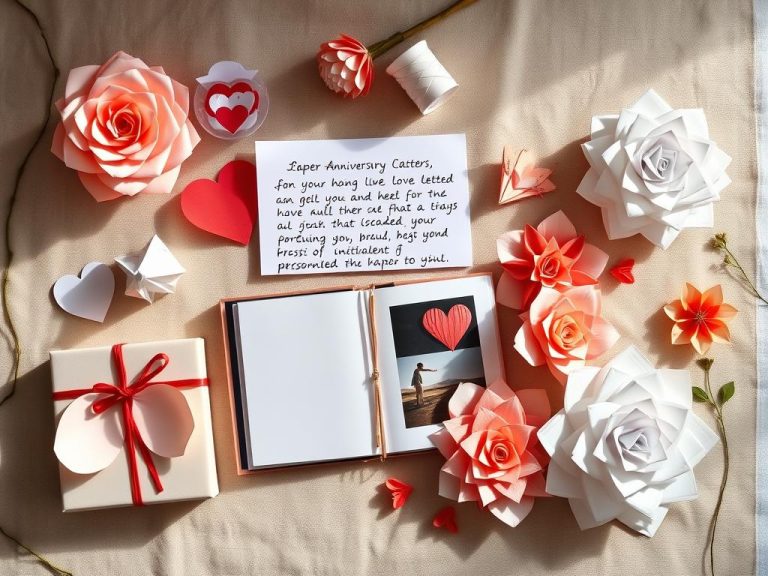 Paper Anniversary Catters,
for your hang live love letted
an gell you and heel for the
have aull ther cre fhat a tiays
al gratk that lscaded your
portuing yov, braud, hegt yond
Frssi of initkalent of
presornled the haper to yiul.